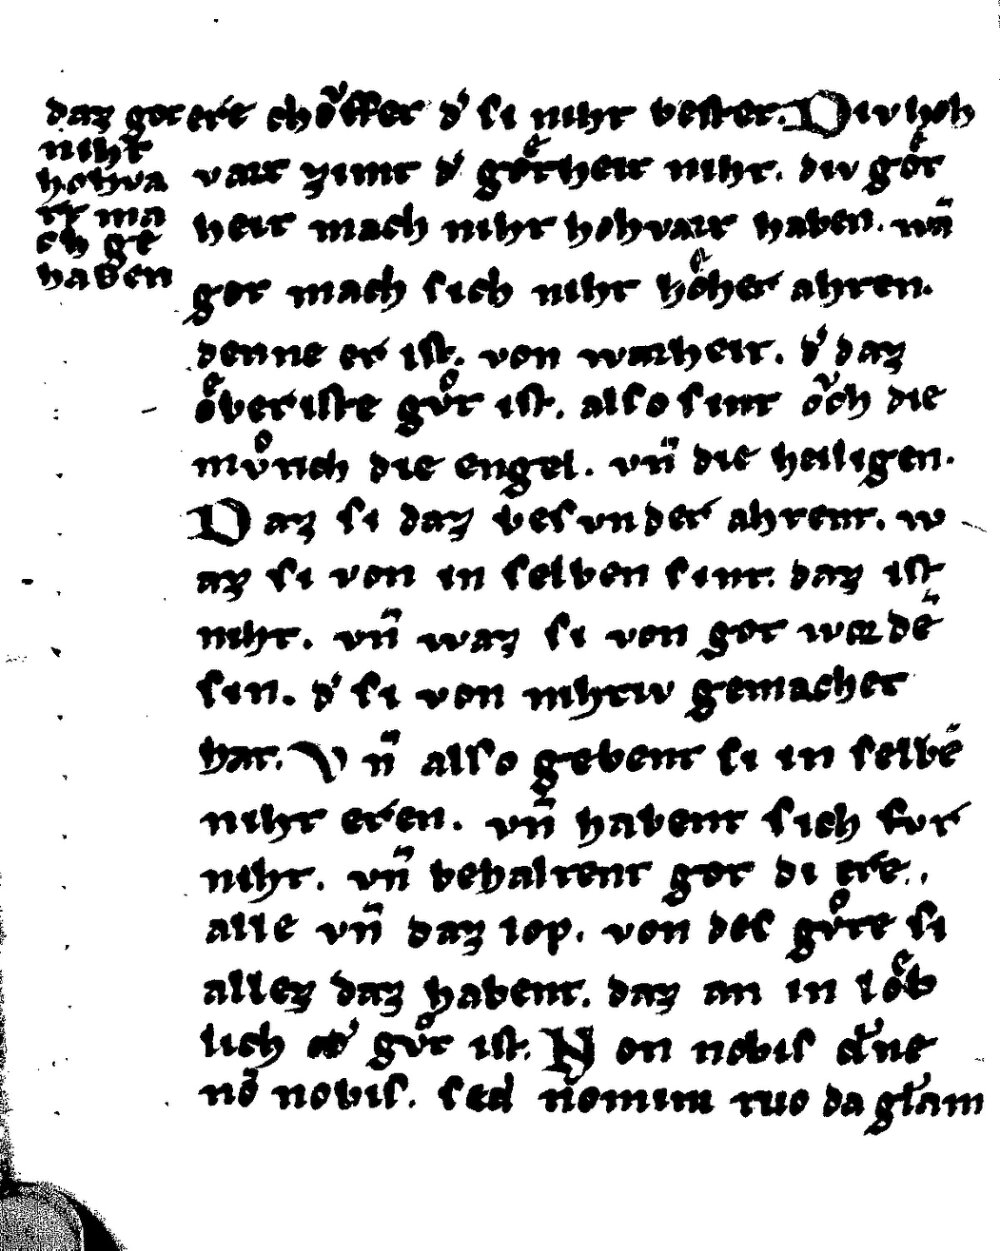 daz got
niht
hohva
rt ma
ch ge
haben
ere choͮffet d' si niht bestet. Div hoh
vart zimt d' goͤtheit niht. div goͤt
heit mach niht hohvart haben. wañ
got mach sich niht hoͤher ahten.
denne er ist. von warheit. d' daz
oͤberiste guͦt ist. also sint oͮch die
muͦnch die engel. vñ die heiligen.
Daz si daz besvnder ahtent. w
az si von in selben sint. daz ist
niht. vñ waz si von got wordē
sin. d' si von nihtiv gemachet
hat. Vñ also gebent si in selbē
niht eren. vñ habent sich fvr
niht. vñ behaltent got di ere.
alle vñ daz lop. von des guͦte si
allez daz habent. daz an in loͤb
lich od' guͦt ist. Non nobis dn̄e
nō nobis. sed nomini tuo da gl'am